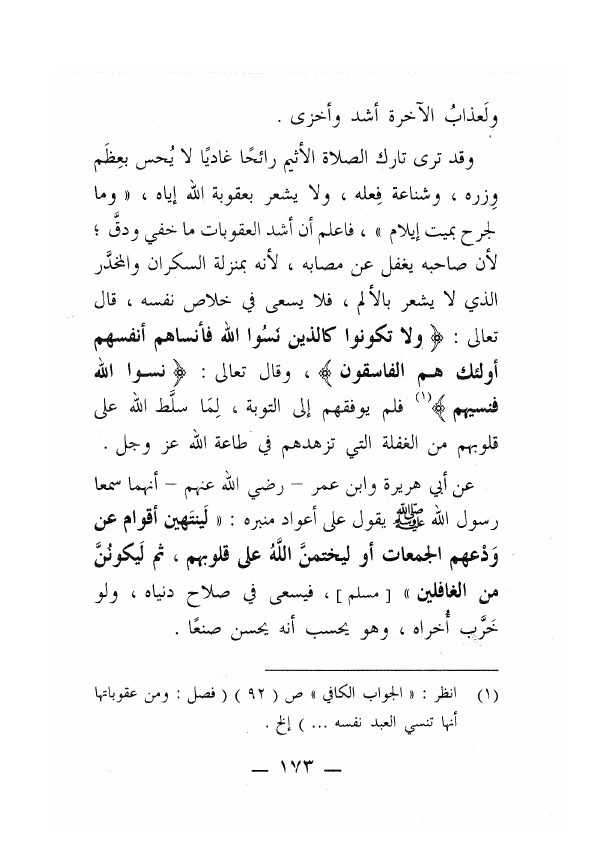 ولَعذابُ الآخرة أشد وأخزى .
وقد ترى تارك الصلاة الأثيم رائحًا غاديًا لا يُحس بعِظَم
وِزره ، وشناعة فِعله ، ولا يشعر بعقوبة الله إياه ، « وما
لجرح بميت إيلام » ، فاعلم أن أشد العقوبات ما خفي ودقَّ ؛
لأن صاحبه يغفل عن مصابه ، لأنه بمنزلة السكران والمخدَّر
الذي لا يشعر بالألم ، فلا يسعى في خلاص نفسه ، قال
تعالى : ﴿ ولا تكونوا كالذين نَسُوا الله فأنساهم أنفسهم
أولئك هـم الفاسقون ﴾ ، وقال تعالى : ﴿ نسـوا الله
فنسيهم ﴾(١) فلم يوفقهم إلى التوبة ، لِمَا سلَّط الله على
قلوبهم من الغفلة التي تزهدهم في طاعة الله عز وجل .
عن أبي هريرة وابن عمر – رضي الله عنهم – أنهما سمعا
رسول الله ﷺ يقول على أعواد منبره : « لَينتَهين أقوام عن
وَدْعهم الجمعات أو ليختمنَّ اللَّهُ على قلوبهم ، ثم لَيكونُنَّ
من الغافلين » [ مسلم ] ، فيسعى في صلاح دنياه ، ولو
خَرَّب أُخراه ، وهو يحسب أنه يحسن صنعًا .
(١) انظر : « الجواب الكافي » ص ( ٩٢ ) ( فصل : ومن عقوباتها
أنها تنسي العبد نفسه ... ) إلخ .
— ١٧٣ —